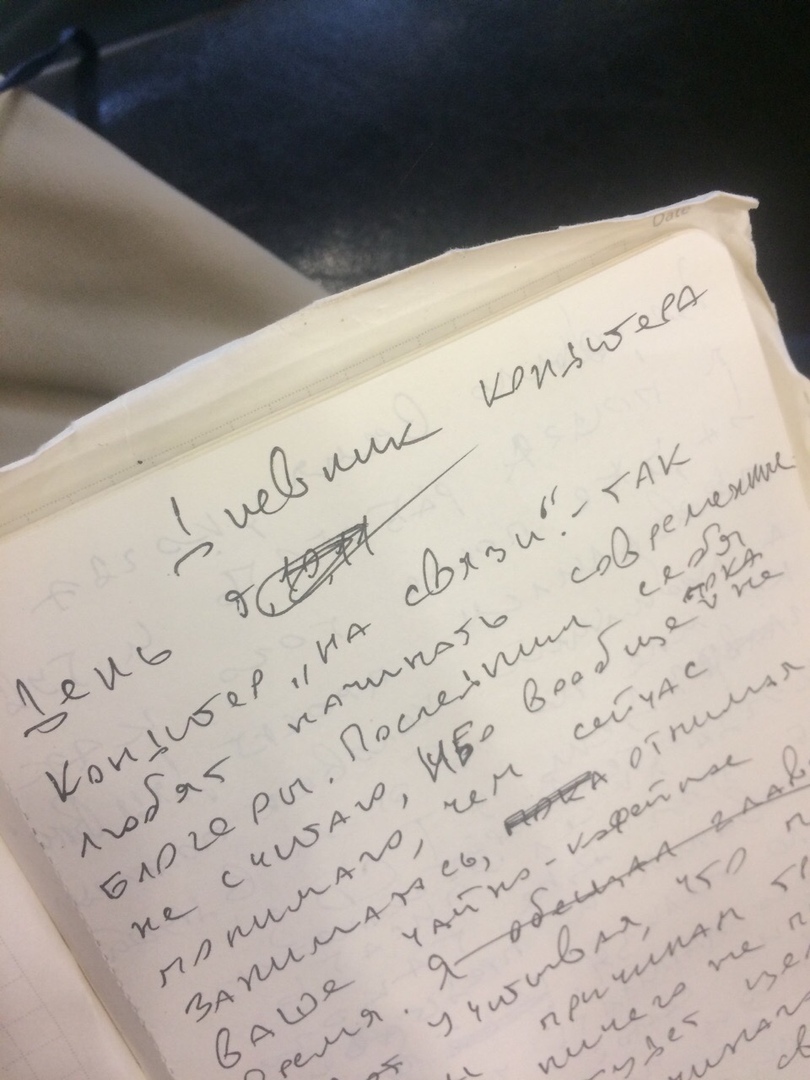 Date
Дневник кондитера
День
Кондитер „на связи“. - так
любят начинать современные
блогеры. Последним себя
не считаю, ибо вообще пока не
понимаю, чем сейчас
занимаюсь, пока отнимая
ваше чайно-кофейное
время. Я обещал
учитывая, что
причинам
ничего не
будет